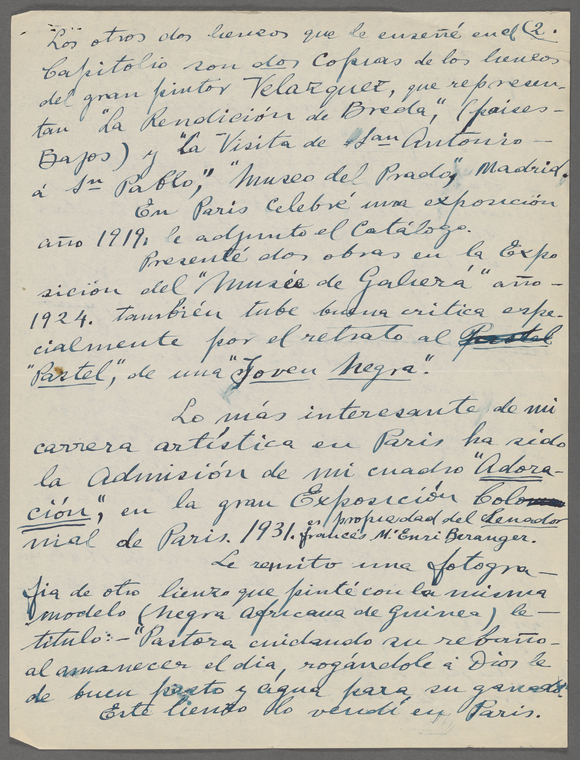 2.
Los otros dos lienzos que le enseñé en el
Capitolio son dos copias de los lienzos
del gran pintor Velazquez, que represen-
tan "La Rendición de Breda", (países-
Bajos) y "La Visita de San Antonio -
á Sn Pablo", "Museo del Prado", Madrid.
En Paris celebré una exposición
año 1919, le adjunto el Catálogo.
Presenté dos obras en la Expo
sición del "Musée de Galierá" año -
1924. también tube buena critica espe-
cialmente por el retrato al Pastel
"Pastel", de una "Joven Negra".
Lo más interesante de mi
carrera artística en Paris ha sido
la Admisión de mi cuadro "Adora-
ción", en la gran Exposición Colo
nial de Paris. 1931. es propiedad del Senador
francés. Mr Enri Beranger.
Le remito una fotogra-
fia de otro lienzo que pinté con la misma
modelo (negra africana de Guinea) le -
titulo: - "Pastora cuidando su rebaño -
al amanecer el dia, rogándole á Dios le
de buen pasto y agua para su ganado".
Este lienzo lo vendí en Paris.